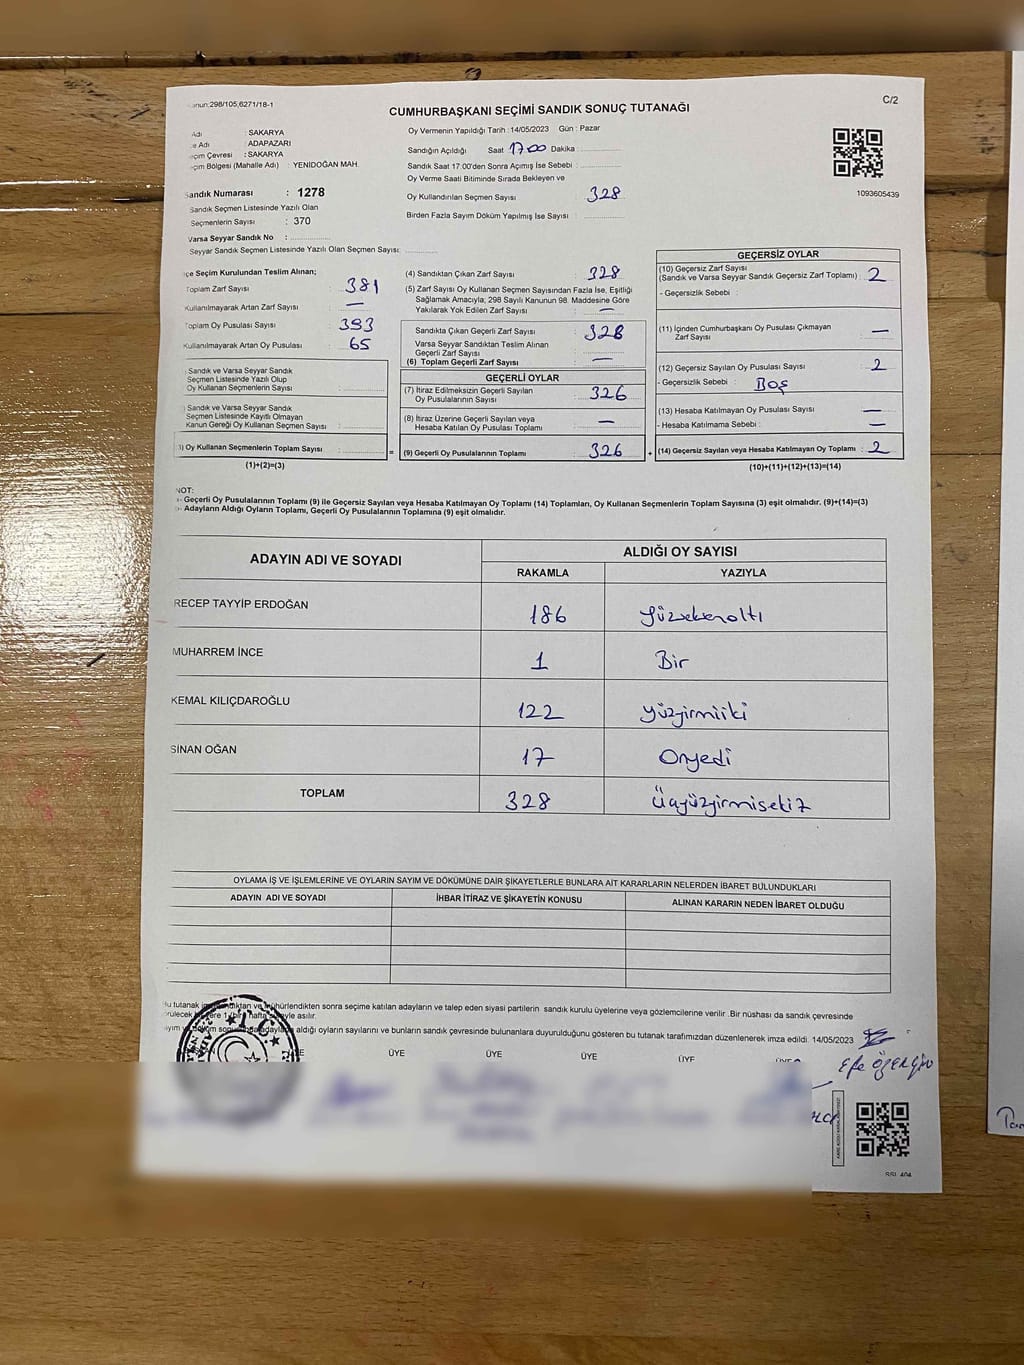 anun:298/105,6271/18-1
C/2
CUMHURBAŞKANI SEÇİMİ SANDIK SONUÇ TUTANAĞI
Adı : SAKARYA
e Adı : ADAPAZARI
eçim Çevresi : SAKARYA
çim Bölgesi (Mahalle Adı) : YENİDOĞAN MAH.
Sandık Numarası : 1278
Sandık Seçmen Listesinde Yazılı Olan
Seçmenlerin Sayısı : 370
Varsa Seyyar Sandık No :
Seyyar Sandık Seçmen Listesinde Yazılı Olan Seçmen Sayısı:
Oy Vermenin Yapıldığı Tarih : 14/05/2023 Gün : Pazar
Sandığın Açıldığı Saat 17.00 Dakika :
Sandık Saat 17:00'den Sonra Açılmış İse Sebebi :
Oy Verme Saati Bitiminde Sırada Bekleyen ve
Oy Kullandırılan Seçmen Sayısı : 328
Birden Fazla Sayım Döküm Yapılmış İse Sayısı :
1093605439
çe Seçim Kurulundan Teslim Alınan;
Toplam Zarf Sayısı : 381
Kullanılmayarak Artan Zarf Sayısı : —
Toplam Oy Pusulası Sayısı : 393
Kullanılmayarak Artan Oy Pusulası : 65
) Sandık ve Varsa Seyyar Sandık
Seçmen Listesinde Yazılı Olup
Oy Kullanan Seçmenlerin Sayısı :
) Sandık ve Varsa Seyyar Sandık
Seçmen Listesinde Kayıtlı Olmayan
Kanun Gereği Oy Kullanan Seçmen Sayısı :
3) Oy Kullanan Seçmenlerin Toplam Sayısı :
(1)+(2)=(3)
(4) Sandıktan Çıkan Zarf Sayısı : 328
(5) Zarf Sayısı Oy Kullanan Seçmen Sayısından Fazla İse, Eşitliği
Sağlamak Amacıyla; 298 Sayılı Kanunun 98. Maddesine Göre
Yakılarak Yok Edilen Zarf Sayısı : —
Sandıkta Çıkan Geçerli Zarf Sayısı : 328
Varsa Seyyar Sandıktan Teslim Alınan
Geçerli Zarf Sayısı :
(6) Toplam Geçerli Zarf Sayısı : —
GEÇERLİ OYLAR
(7) İtiraz Edilmeksizin Geçerli Sayılan
Oy Pusulalarının Sayısı : 326
(8) İtiraz Üzerine Geçerli Sayılan veya
Hesaba Katılan Oy Pusulası Toplamı : —
= (9) Geçerli Oy Pusulalarının Toplamı : 326
GEÇERSİZ OYLAR
(10) Geçersiz Zarf Sayısı
(Sandık ve Varsa Seyyar Sandık Geçersiz Zarf Toplamı) : 2
- Geçersizlik Sebebi :
(11) İçinden Cumhurbaşkanı Oy Pusulası Çıkmayan
Zarf Sayısı : —
(12) Geçersiz Sayılan Oy Pusulası Sayısı : 2
- Geçersizlik Sebebi : BOŞ
(13) Hesaba Katılmayan Oy Pusulası Sayısı : —
- Hesaba Katılmama Sebebi : —
+ (14) Geçersiz Sayılan veya Hesaba Katılmayan Oy Toplamı : 2
(10)+(11)+(12)+(13)=(14)
NOT:
- Geçerli Oy Pusulalarının Toplamı (9) ile Geçersiz Sayılan veya Hesaba Katılmayan Oy Toplamı (14) Toplamları, Oy Kullanan Seçmenlerin Toplam Sayısına (3) eşit olmalıdır. (9)+(14)=(3)
- Adayların Aldığı Oyların Toplamı, Geçerli Oy Pusulalarının Toplamına (9) eşit olmalıdır.
ADAYIN ADI VE SOYADI ALDIĞI OY SAYISI
RAKAMLA YAZIYLA
RECEP TAYYİP ERDOĞAN 186 Yüzseksenaltı
MUHARREM İNCE 1 Bir
KEMAL KILIÇDAROĞLU 122 Yüzyirmiiki
SİNAN OĞAN 17 Onyedi
TOPLAM 328 Üçyüzyirmisekiz
OYLAMA İŞ VE İŞLEMLERİNE VE OYLARIN SAYIM VE DÖKÜMÜNE DAİR ŞİKAYETLERLE BUNLARA AİT KARARLARIN NELERDEN İBARET BULUNDUKLARI
ADAYIN ADI VE SOYADI İHBAR İTİRAZ VE ŞİKAYETİN KONUSU ALINAN KARARIN NEDEN İBARET OLDUĞU
mühürlendikten sonra seçime katılan adayların ve talep eden siyasi partilerin sandık kurulu üyelerine veya gözlemcilerine verilir .Bir nüshası da sandık çevresinde
asılır.
aldığı oyların sayılarını ve bunların sandık çevresinde bulunanlara duyurulduğunu gösteren bu tutanak tarafımızdan düzenlenerek imza edildi. 14/05/2023
ÜYE ÜYE ÜYE ÜYE
Efe